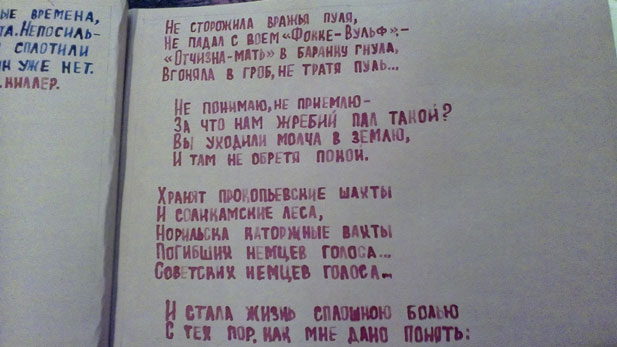 ЫЕ ВРЕМЕНА,
ТА. НЕПОСИЛЬ-
СПЛОТИЛИ
УЖЕ НЕТ.
КИЛЛЕР.
НЕ СТОРОЖИЛА ВРАЖЬЯ ПУЛЯ,
НЕ ПАДАЛ С ВОЕМ «ФОККЕ-ВУЛЬФ»,-
«ОТЧИЗНА-МАТЬ» В БАРАНКУ ГНУЛА,
ВГОНЯЛА В ГРОБ, НЕ ТРАТЯ ПУЛЬ...
НЕ ПОНИМАЮ, НЕ ПРИЕМЛЮ-
ЗА ЧТО НАМ ЖРЕБИЙ ПАЛ ТАКОЙ?
ВЫ УХОДИЛИ МОЛЧА В ЗЕМЛЮ,
И ТАМ НЕ ОБРЕТЯ ПОКОЙ.
ХРАНЯТ ПРОКОПЬЕВСКИЕ ШАХТЫ
И СОЛИКАМСКИЕ ЛЕСА,
НОРИЛЬСКА КАТОРЖНЫЕ ВАХТЫ
ПОГИБШИХ НЕМЦЕВ ГОЛОСА...
СОВЕТСКИХ НЕМЦЕВ ГОЛОСА...
И СТАЛА ЖИЗНЬ СПЛОШНОЮ БОЛЬЮ
С ТЕХ ПОР, КАК МНЕ ДАНО ПОНЯТЬ: